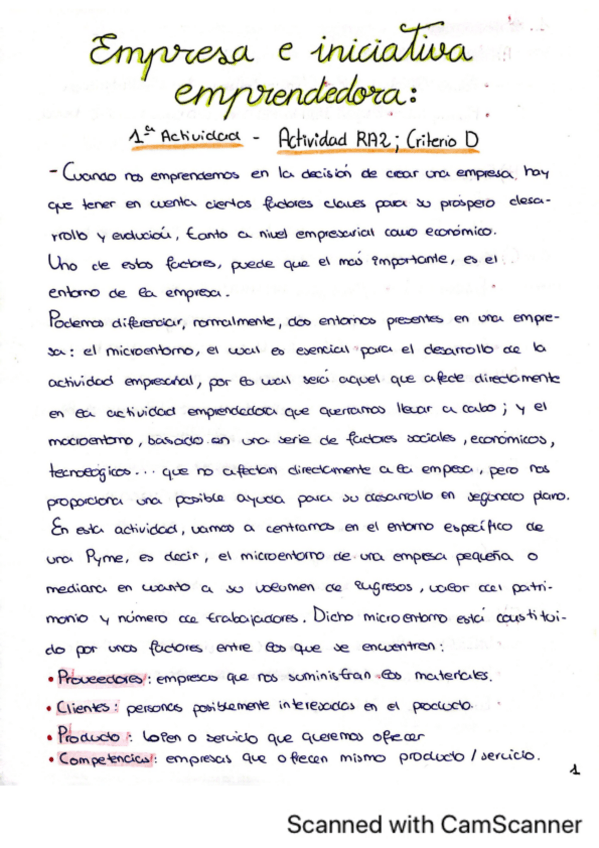 Empresa e iniciativa
emprendedora:
1ª Actividad - Actividad RA2; Criterio D
- Cuando nos emprendemos en la decisión de crear una empresa, hay
que tener en cuenta ciertos factores claves para su próspero desa-
rrollo y evolución, tanto a nivel empresarial como económico.
Uno de estos factores, puede que el más importante, es el
entorno de la empresa.
Podemos diferenciar, normalmente, dos entornos presentes en una empre-
sa: el microentorno, el cual es esencial para el desarrollo de la
actividad empresarial, por lo cual será aquel que afecte directamente
en la actividad emprendedora que queramos llevar a cabo; y el
macroentorno, basado en una serie de factores sociales, económicos,
tecnológicos... que no afectan directamente a la empresa, pero nos
proporciona una posible ayuda para su desarrollo en segundo plano.
En esta actividad, vamos a centrarnos en el entorno específico de
una Pyme, es decir, el microentorno de una empresa pequeña o
mediana en cuanto a su volumen de ingresos, valor del patri-
monio y número de trabajadores. Dicho microentorno está constitui-
do por unos factores entre los que se encuentran:
• Proveedores: empresas que nos suministran los materiales.
• Clientes: personas posiblemente interesadas en el producto.
• Producto: bien o servicio que queremos ofrecer
• Competencias: empresas que ofrecen mismo producto / servicio.
1
Scanned with CamScanner